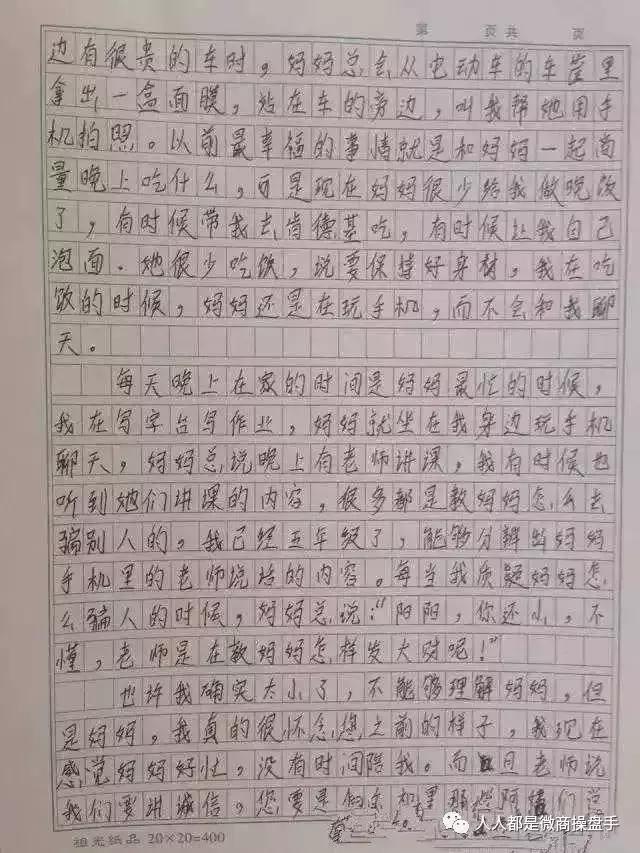 第 页共 页
边有很贵的车时，妈妈总会从电动车的车筐里
拿出一盒面膜，站在车的旁边，叫我帮她用手
机拍照。以前最幸福的事情就是和妈妈一起商
量晚上吃什么，可是现在妈妈很少给我做晚饭
了，有时候带我去肯德基吃，有时候让我自己
泡面。她很少吃饭，说要保持好身材，我在吃
饭的时候，妈妈还是在玩手机，而不会和我聊
天。
每天晚上在家的时间是妈妈最忙的时候，
我在写字台写作业，妈妈就坐在我身边玩手机
聊天，妈妈总说晚上有老师讲课，我有时候也
听到她们讲课的内容，很多都是教妈妈怎么去
骗别人的。我已经五年级了，能够分辨出妈妈
手机里的老师说话的内容。每当我质疑妈妈怎
么骗人的时候，妈妈总说：“阳阳，你还小，不
懂，老师是在教妈妈怎样发大财呢！”
也许我确实太小了，不能够理解妈妈，但
是妈妈，我真的很怀念您之前的样子，我现在
感觉妈妈好忙，没有时间陪我。而且老师说
我们要讲诚信，您要是
旭光纸品 20×20=400
人人都是微商操盘手